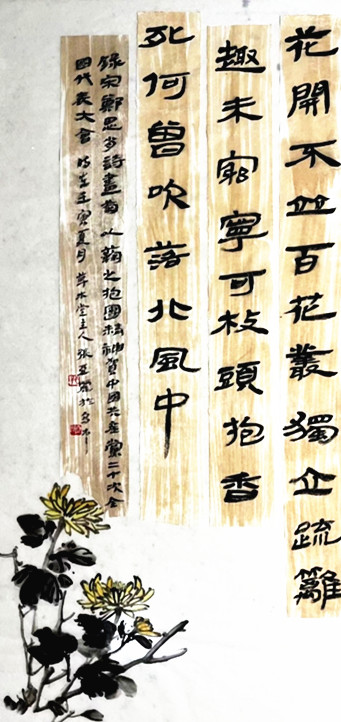 花開不並百花叢獨立疏籬
趣未窮寧可枝頭抱香
死何曾吹落北風中
錄宋鄭思肖詩畫菊以菊之抱團精神賀中國共產黨二十次全
国代表大會 時在壬寅夏月 草水堂主人張亞